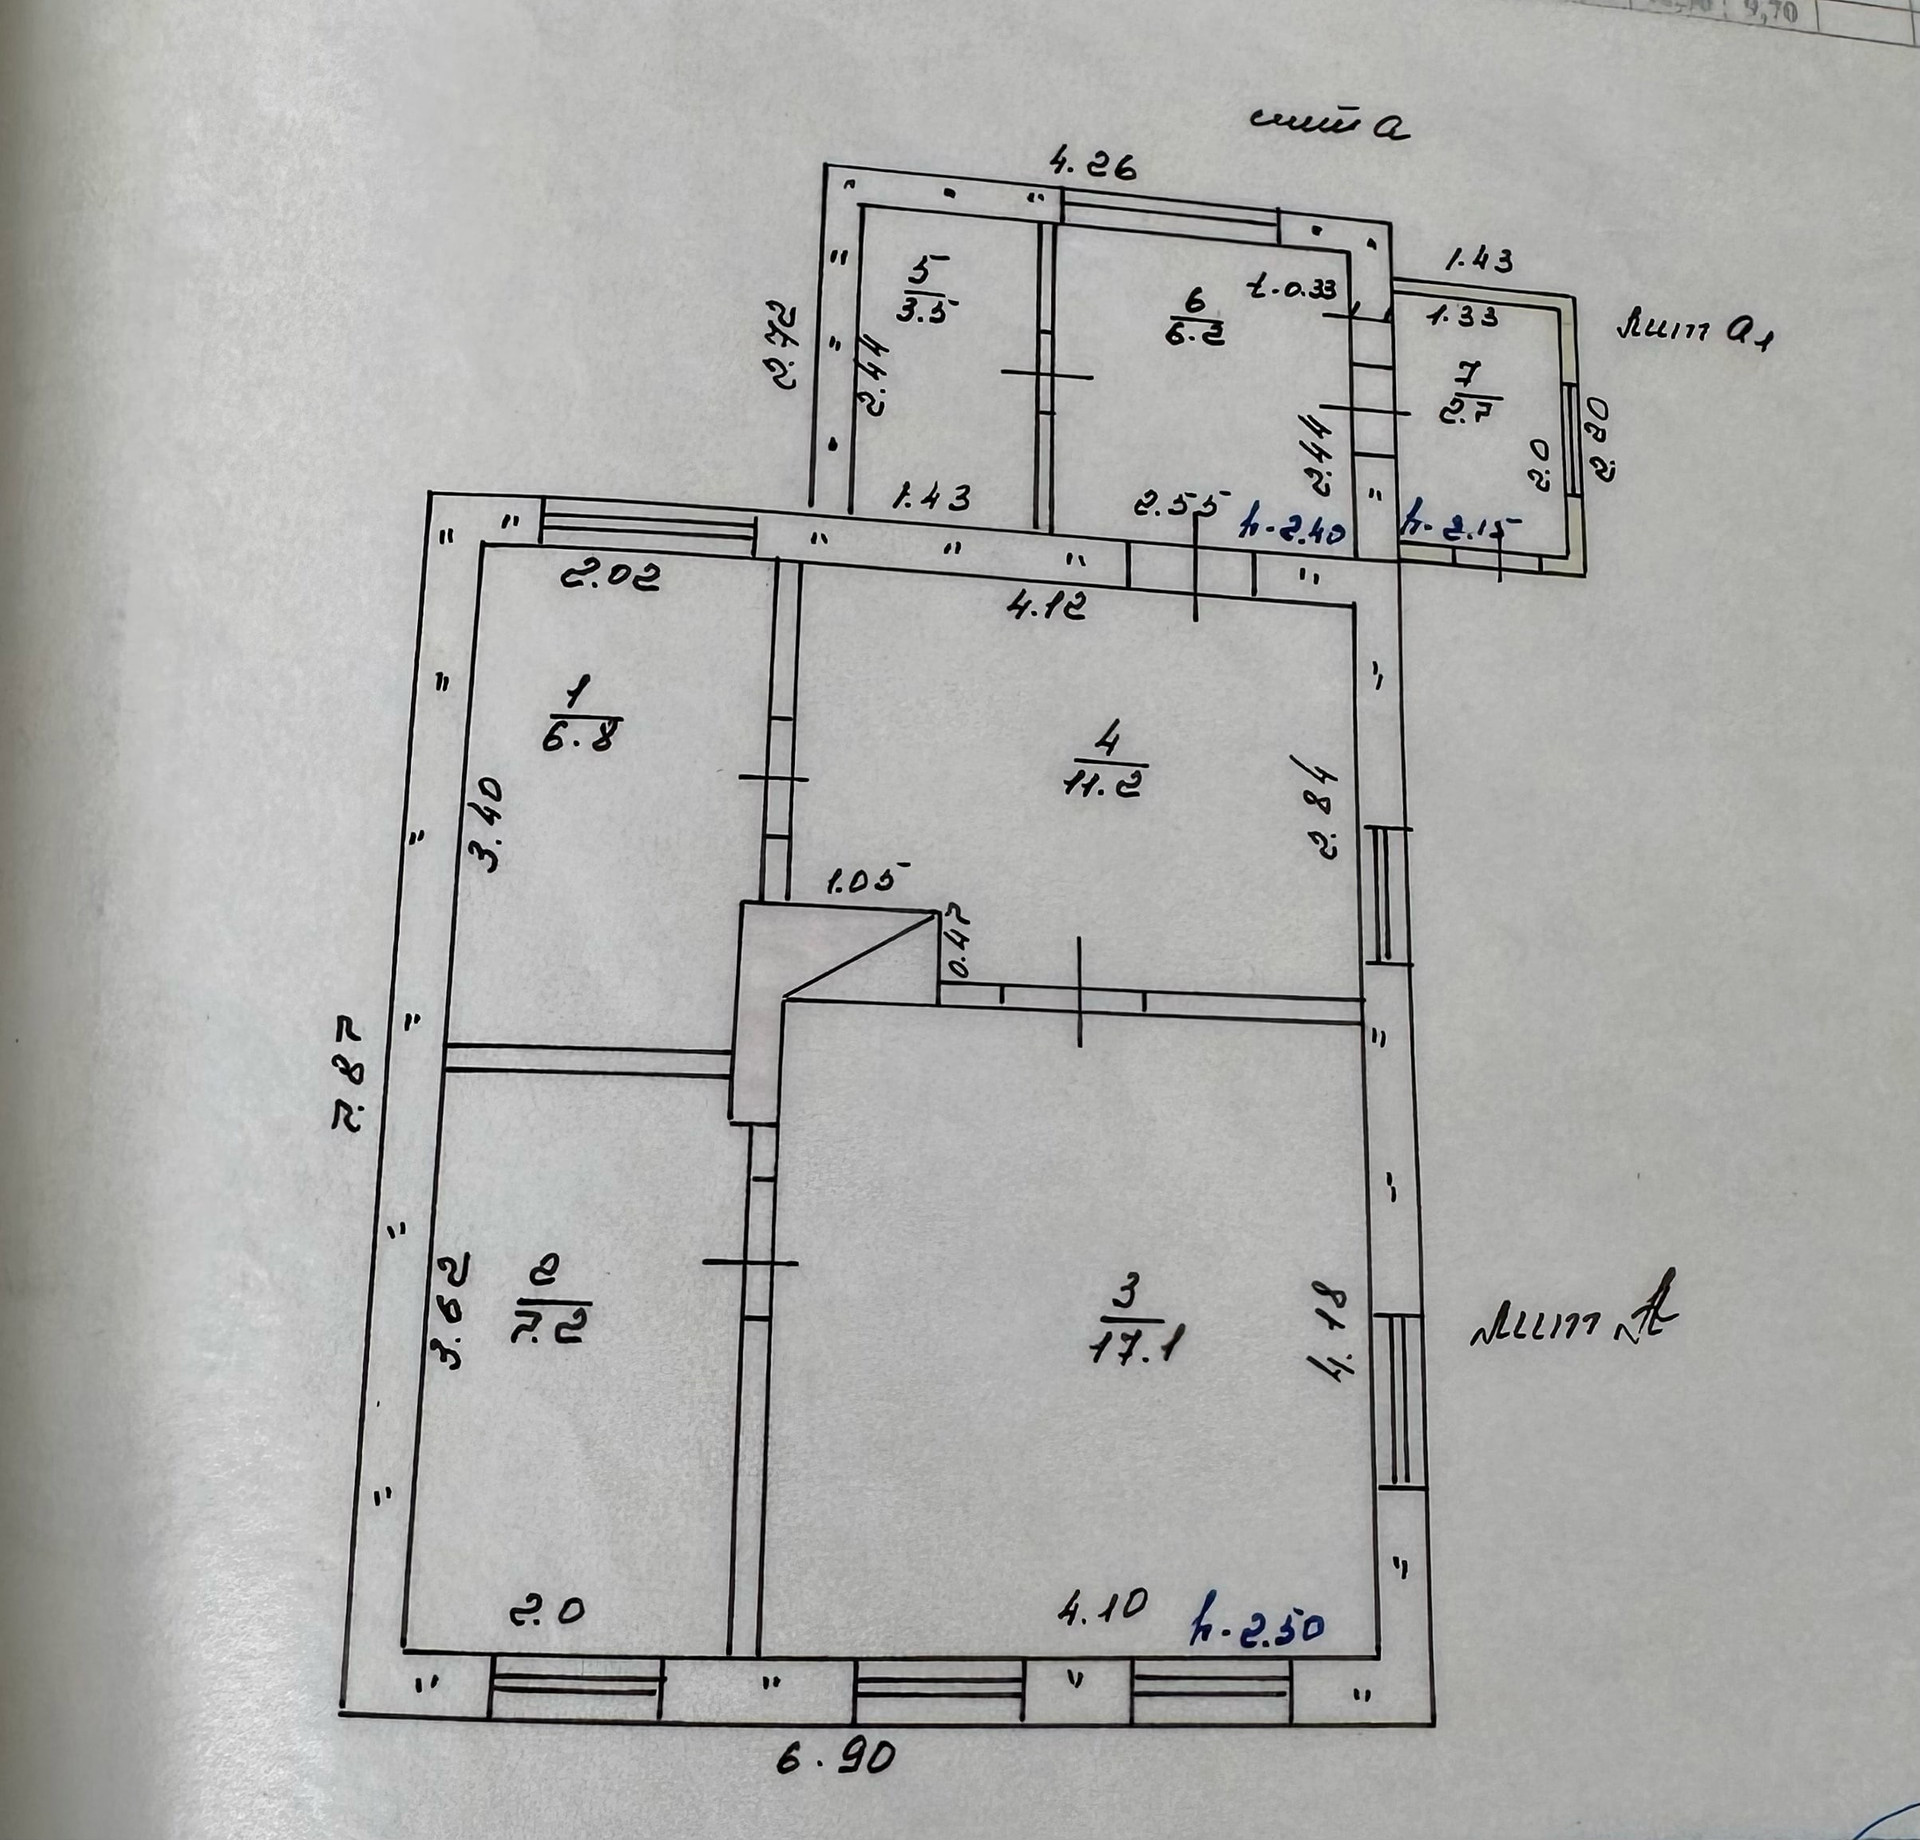 9,70
лит а
4.26
1.43
лит а1
5
3.5
6
6.2
t-0.33
1.33
2.72
2.44
7
2.7
2.44
2.0
2.20
1.43
2.55
h-2.40
h-2.15
2.02
4.12
1
6.8
4
11.2
3.40
2.84
1.05
0.47
7.87
3.62
2
7.2
3
17.1
4.18
лит А
2.0
4.10
h-2.50
6.90